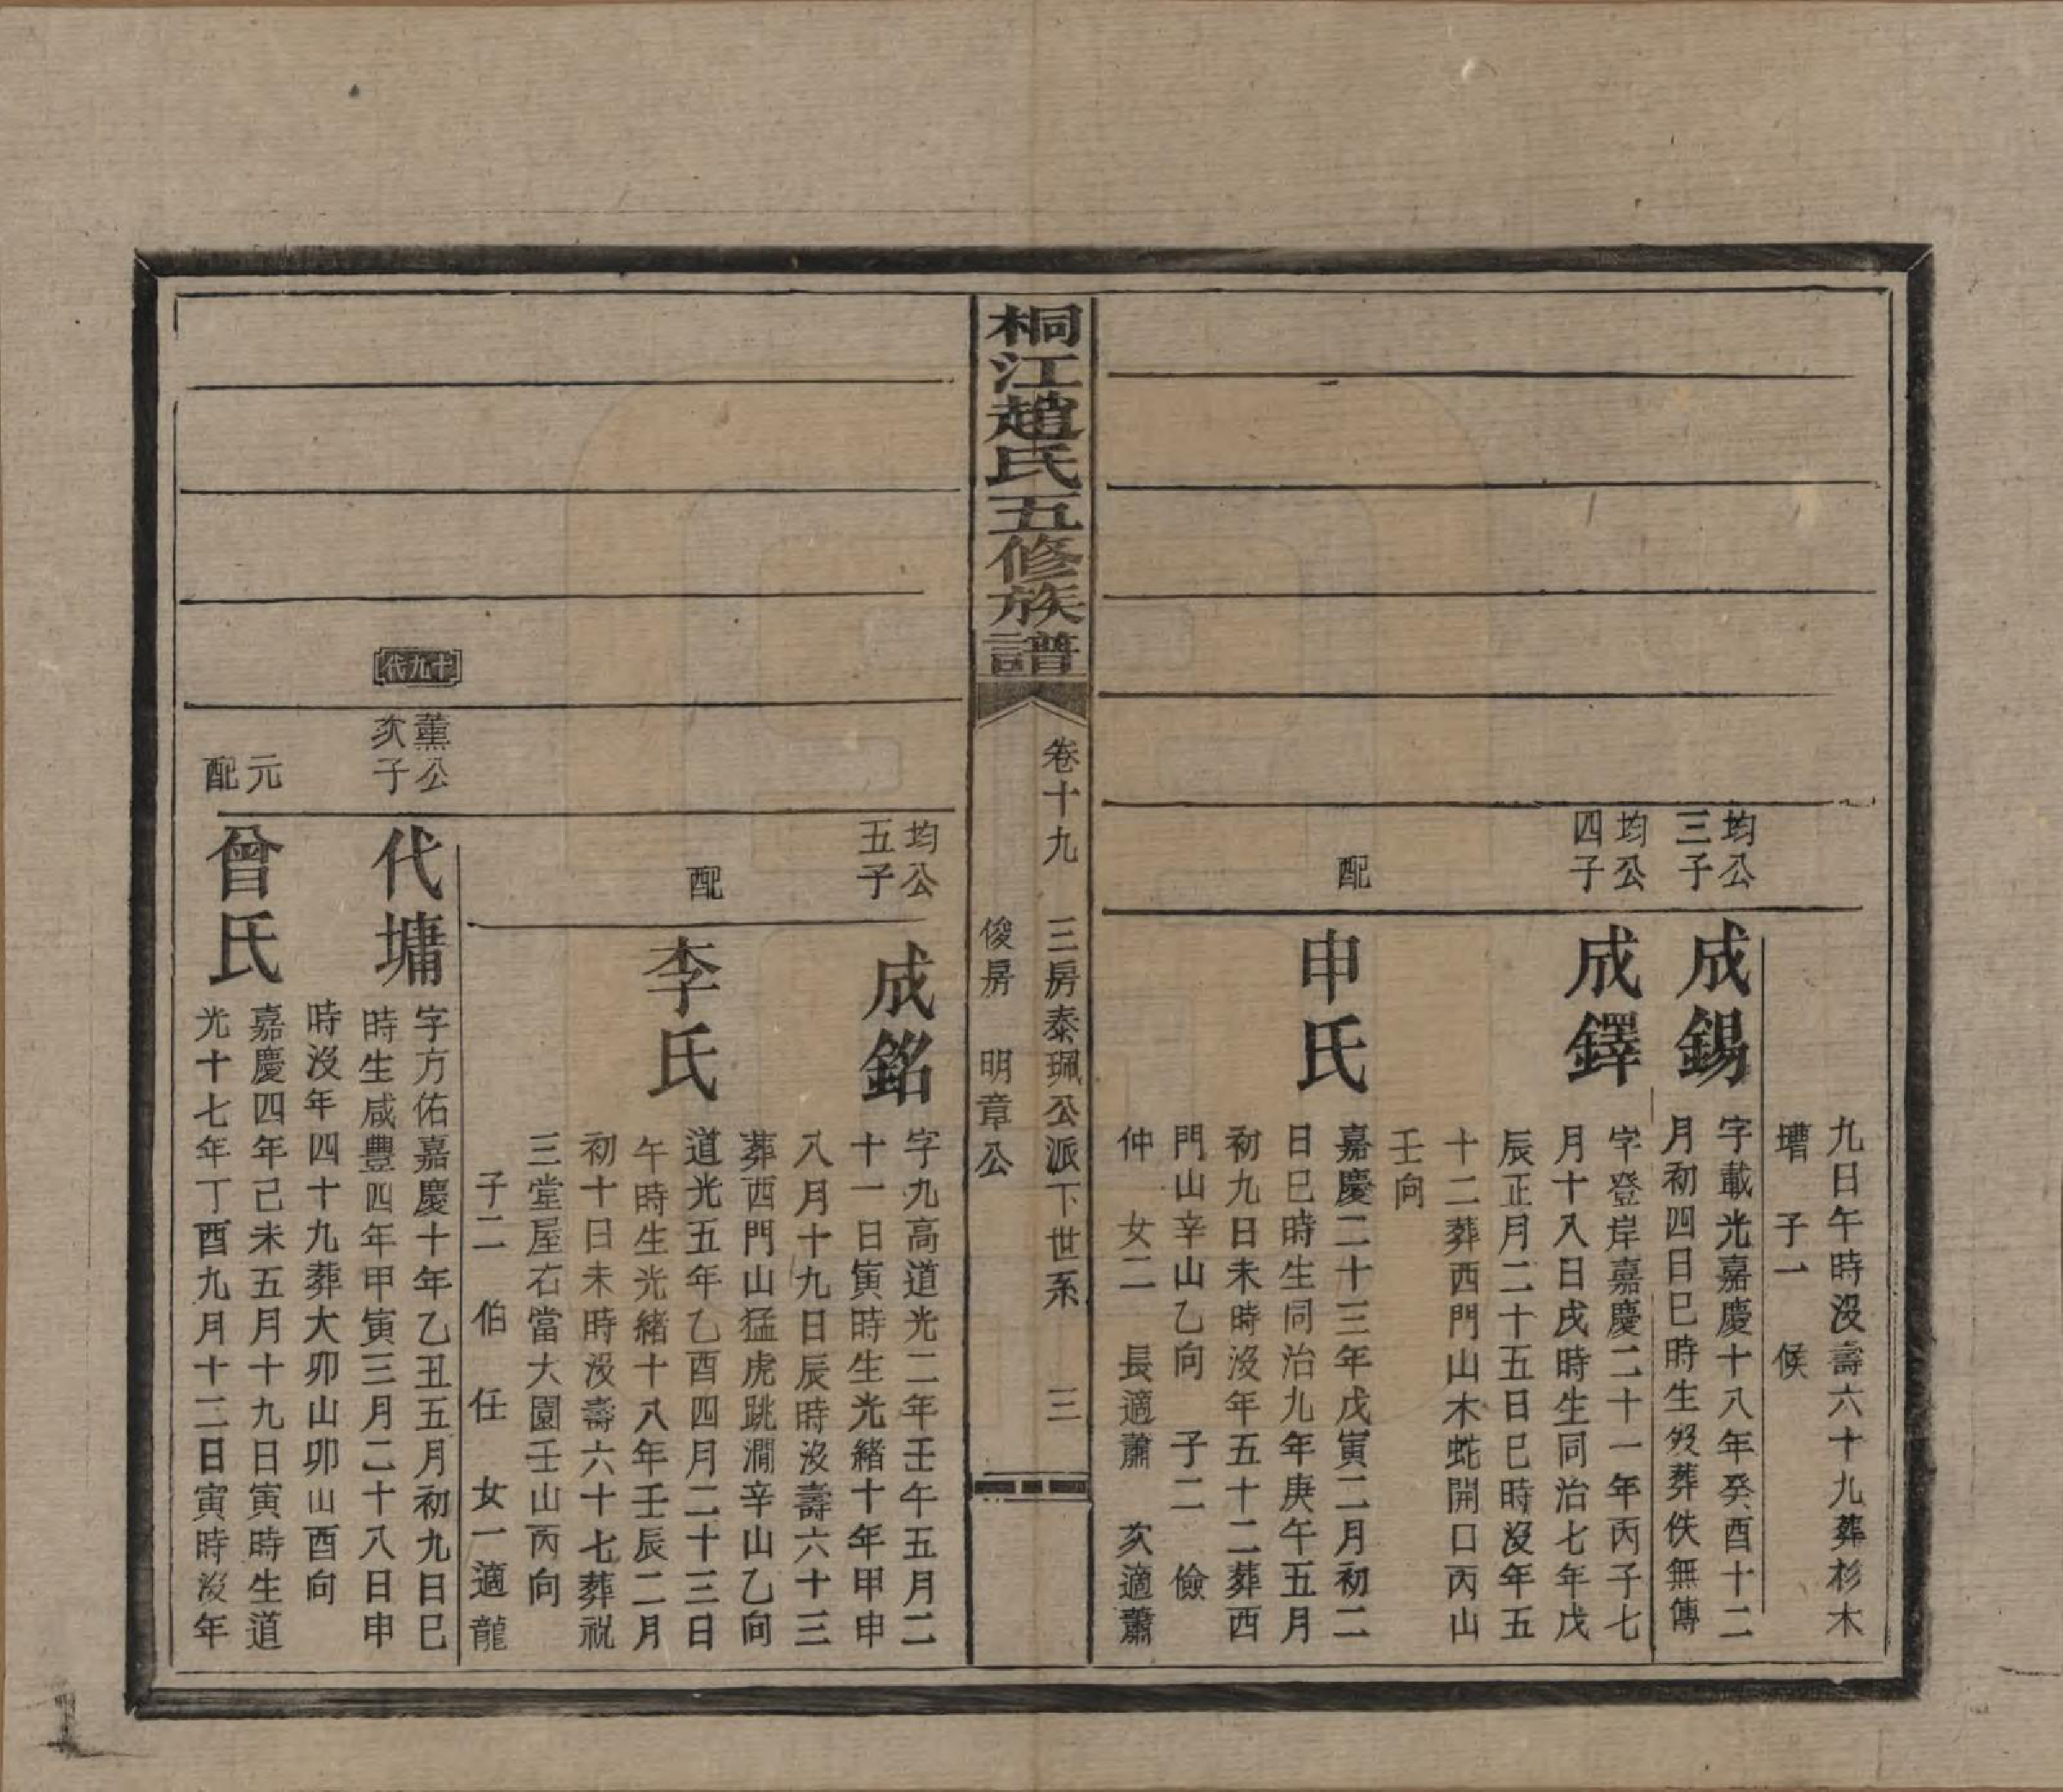 九日午時沒壽六十九葬杉木
𡑡　子一　候
均公
三子
成錫
字載光嘉慶十八年癸酉十二
月初四日巳時生歿葬佚無傳
均公
四子
成鐸
字登岸嘉慶二十一年丙子七
月十八日戌時生同治七年戊
辰正月二十五日巳時沒年五
十二葬西門山木蛇開口丙山
壬向
配
申氏
嘉慶二十三年戊寅二月初二
日巳時生同治九年庚午五月
初九日未時沒年五十二葬西
門山辛山乙向　子二　儉
仲　女二　長適蕭　次適蕭
桐江趙氏五修族譜
卷十九　三房泰珮公派下世系　三
俊房　明章公
均公
五子
成銘
字九高道光二年壬午五月二
十一日寅時生光緒十年甲申
八月十九日辰時沒壽六十三
葬西門山猛虎跳澗辛山乙向
配
李氏
道光五年乙酉四月二十三日
午時生光緒十八年壬辰二月
初十日未時沒壽六十七葬祝
三堂屋右當大園壬山丙向
子二　伯　任　女一適龍
十九代
薰公
次子
代墉
字方佑嘉慶十年乙丑五月初九日巳
時生咸豐四年甲寅三月二十八日申
時沒年四十九葬大卯山卯山酉向
元配
曾氏
嘉慶四年己未五月十九日寅時生道
光十七年丁酉九月十二日寅時沒年